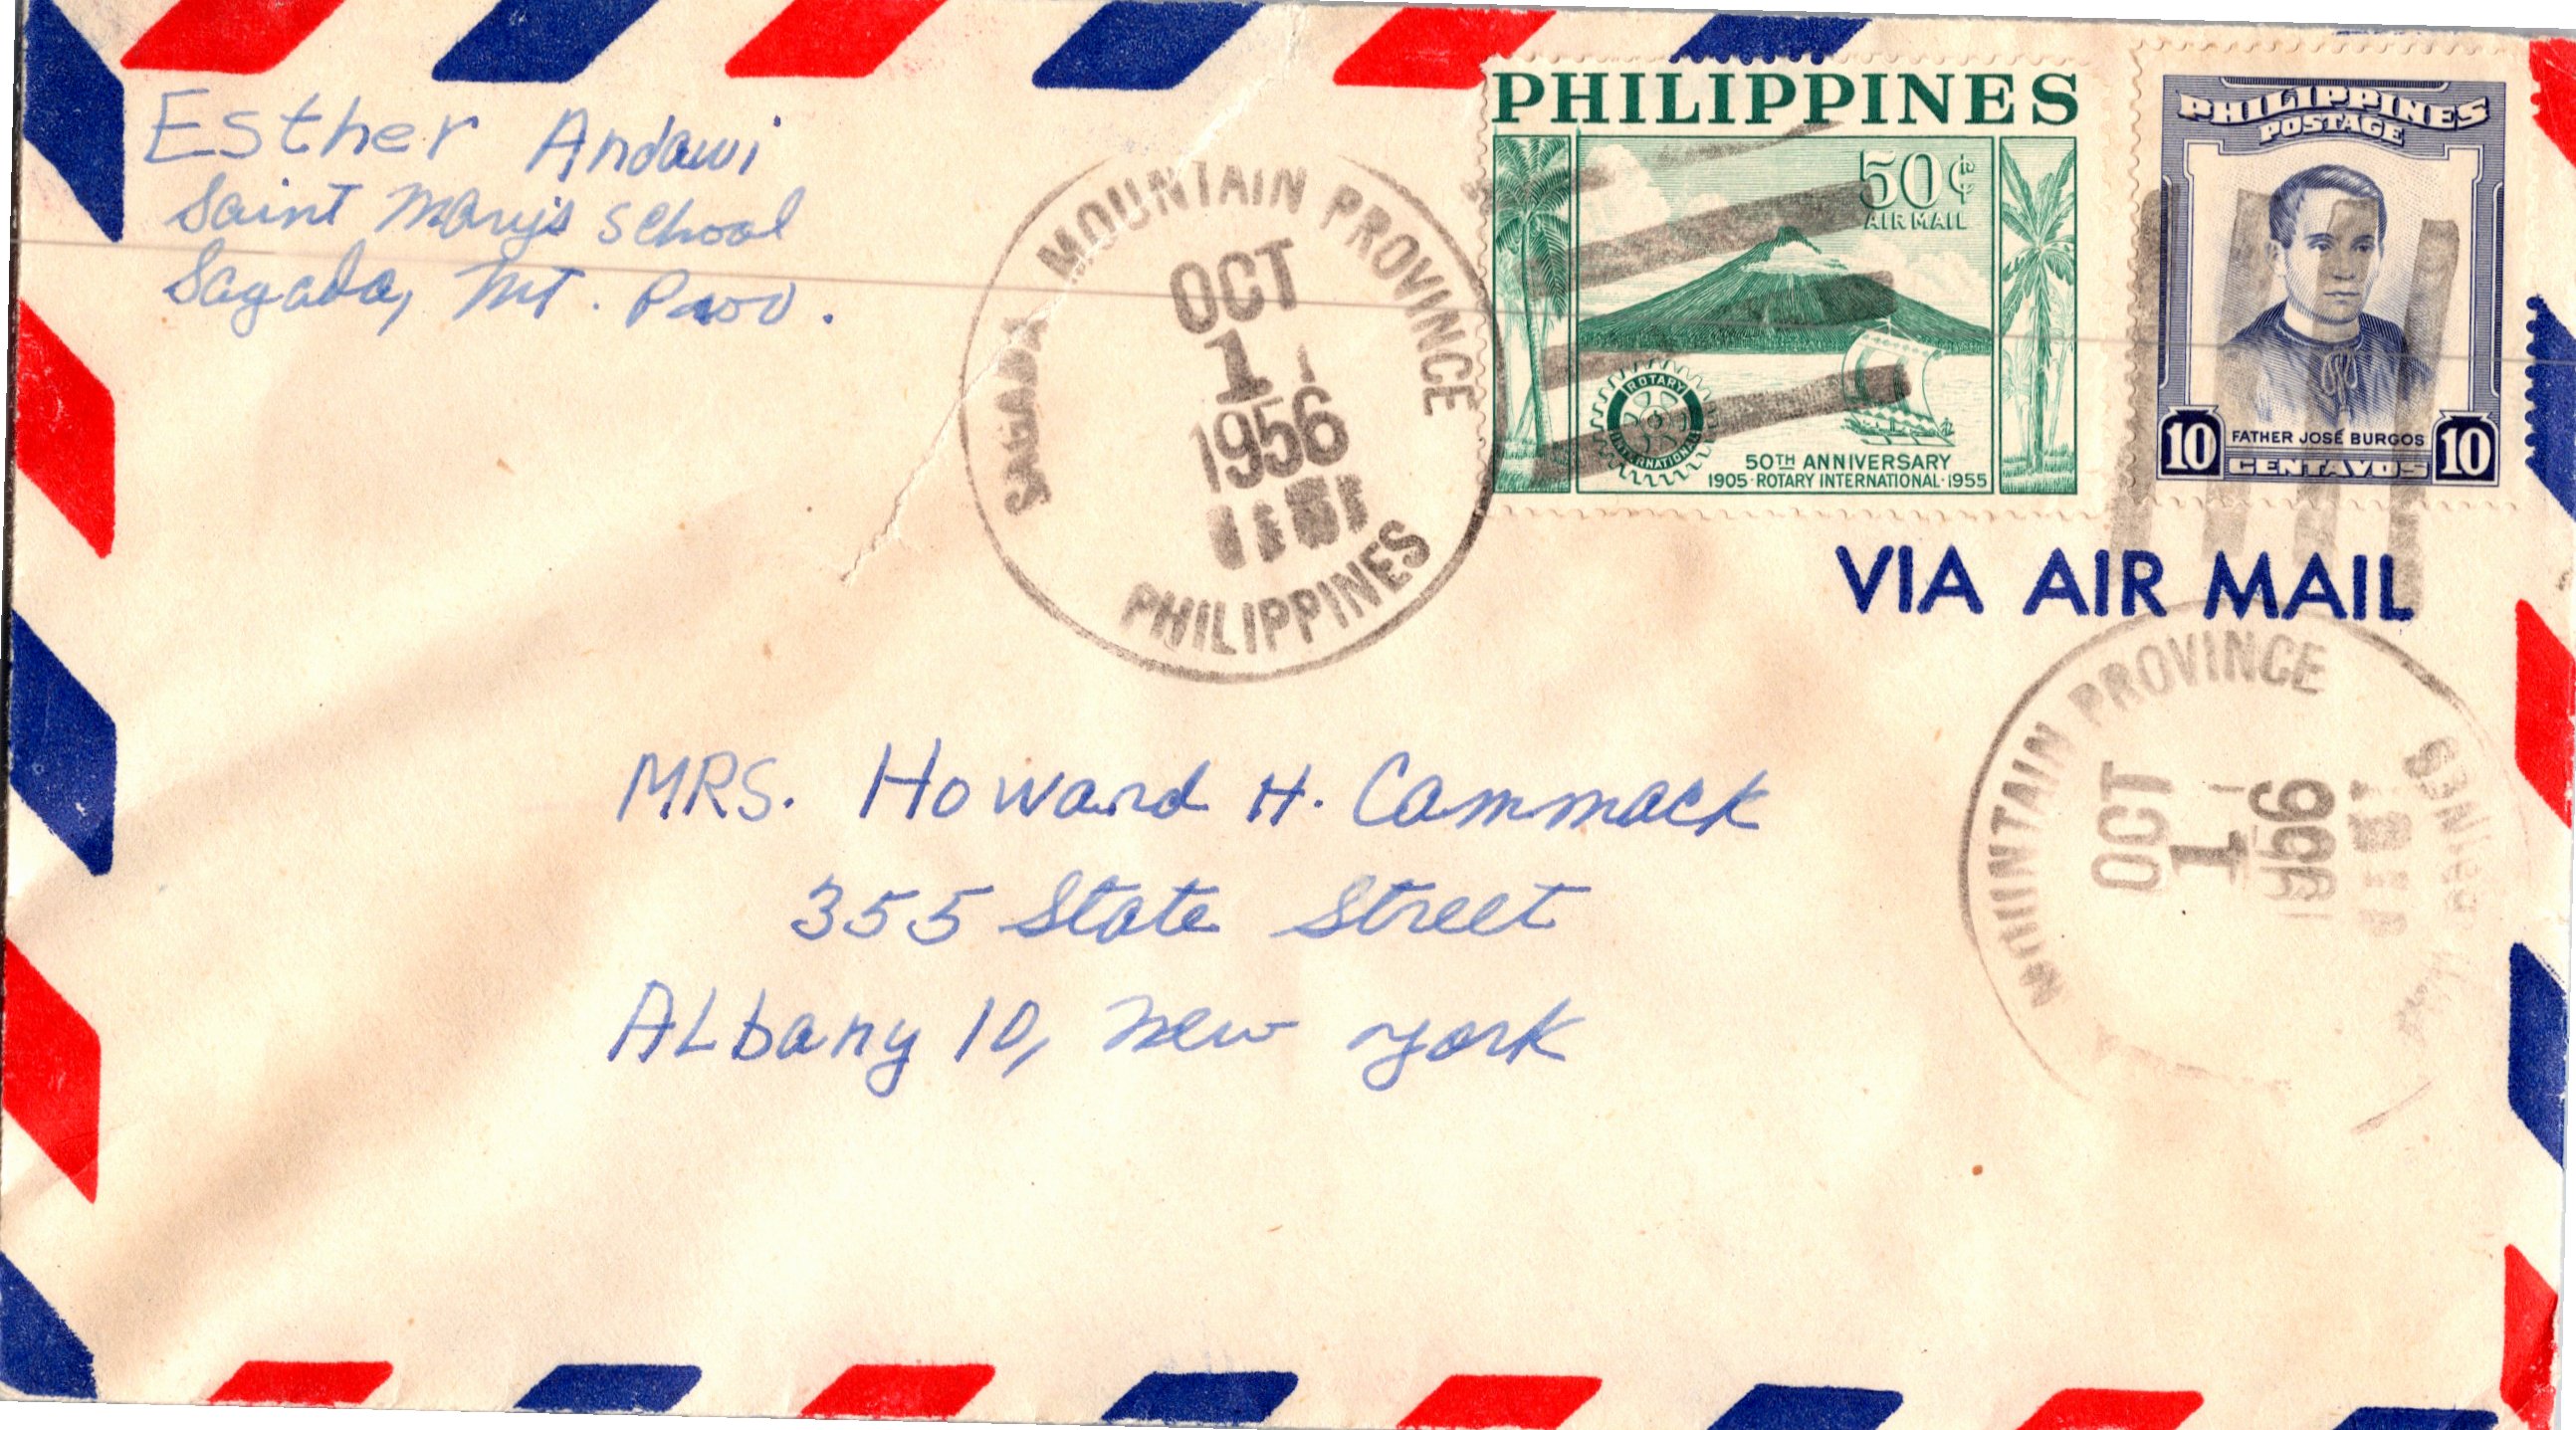 Esther Andawi
Saint Mary's School
Sagada, Mt. Prov.
SAGADA MOUNTAIN PROVINCE
OCT
1
1956
PHILIPPINES
PHILIPPINES
50¢
AIR MAIL
ROTARY
INTERNATIONAL
50TH ANNIVERSARY
1905·ROTARY INTERNATIONAL·1955
PHILIPPINES
POSTAGE
FATHER JOSÉ BURGOS
10 CENTAVOS 10
VIA AIR MAIL
MOUNTAIN PROVINCE
OCT
1
1956
MRS. Howard H. Cammack
355 State Street
ALbany 10, New York